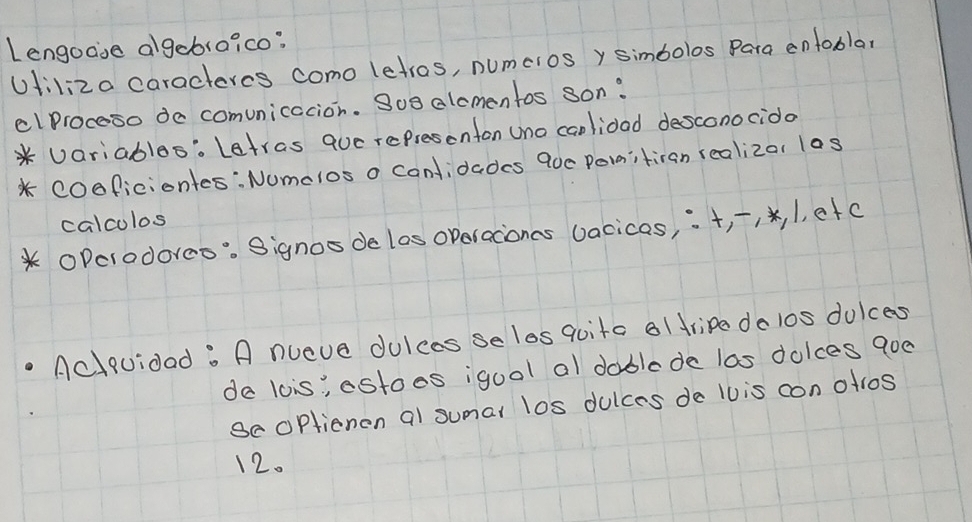 Lengoaje algebraico:
Utiliza caracteres como letras, numeros y simbolos para entablar
el proceso de comunicacion. Sus elementos son:
* Variables: Letras que representan una cantidad desconocida
* Coeficientes: Numeros o cantidades que permitiran realizar las
calculos
* Operadores: Signos de las operaciones vacicas,: +, -, *, /, etc
• Actividad: A nueve dulces se les quita el tripe de los dulces
de luis; esto es igual al doble de los dulces que
se optienen al sumar los dulces de luis con otros
12.